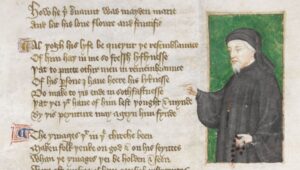 How he þi seruaunt was mayden marie
And lat his loue floure and fructifie
Al þogh his lyfe be queynt þe resemblaunce
Of him haþ in me so fressh lyflynesse
Þat to putte othir men in remembraunce
Of his persone I haue heere his lyknesse
Do make to þis ende in sothfastnesse
Þat þei þt haue of him lest þought & mynde
By þis peynture may ageyn him fynde
The ymages þt in þe chirche been
Maken folk þenke on god & on his seyntes
Whan þe ymages þei beholden & seen